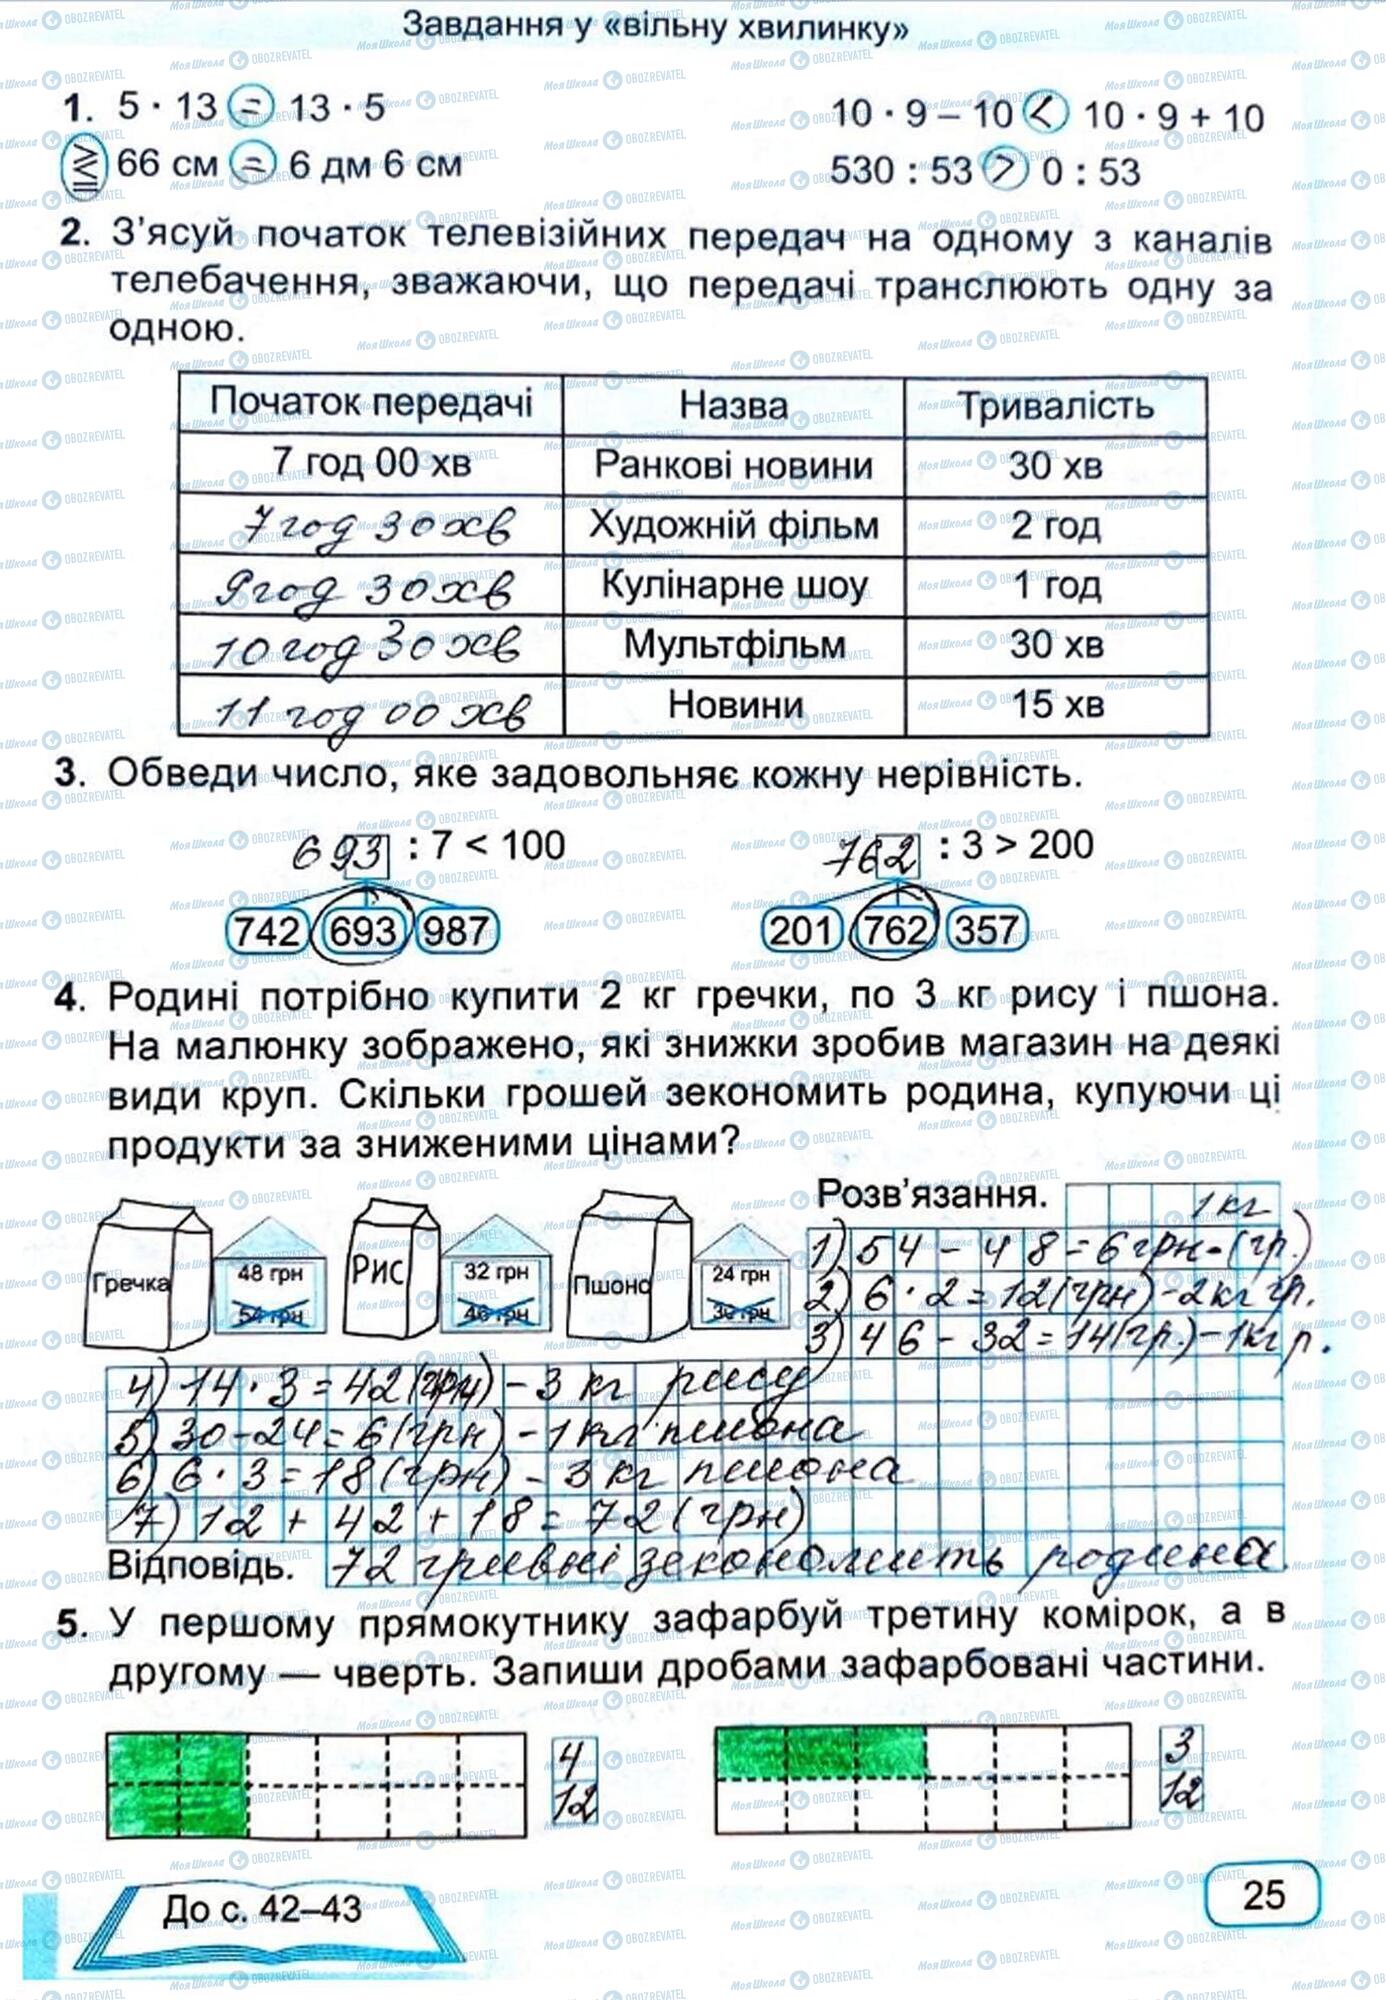 Завдання у «вільну хвилинку»
1. 5 · 13 = 13 · 5
10 · 9 – 10 < 10 · 9 + 10
66 см = 6 дм 6 см
530 : 53 > 0 : 53
2. З’ясуй початок телевізійних передач на одному з каналів
телебачення, зважаючи, що передачі транслюють одну за
одною.
Початок передачі Назва Тривалість
7 год 00 хв Ранкові новини 30 хв
7 год 30 хв Художній фільм 2 год
9 год 30 хв Кулінарне шоу 1 год
10 год 30 хв Мультфільм 30 хв
11 год 00 хв Новини 15 хв
3. Обведи число, яке задовольняє кожну нерівність.
693 : 7 < 100
762 : 3 > 200
742 693 987
201 762 357
4. Родині потрібно купити 2 кг гречки, по 3 кг рису і пшона.
На малюнку зображено, які знижки зробив магазин на деякі
види круп. Скільки грошей зекономить родина, купуючи ці
продукти за зниженими цінами?
Розв’язання.
1 кг
Гречка 48 грн 54 грн
Рис 32 грн 46 грн
Пшоно 24 грн 30 грн
1) 54 - 48 = 6 грн - (гр.)
2) 6 · 2 = 12 (грн) - 2 кг гр.
3) 46 - 32 = 14 (гр.) - 1 кг р.
4) 14 · 3 = 42 (грн) - 3 кг рису
5) 30 - 24 = 6 (грн) - 1 кг пшона
6) 6 · 3 = 18 (грн) - 3 кг пшона
7) 12 + 42 + 18 = 72 (грн)
Відповідь. 72 гривні зекономить родина.
5. У першому прямокутнику зафарбуй третину комірок, а в
другому — чверть. Запиши дробами зафарбовані частини.
4
12
3
12
До с. 42–43
25
МояШкола OBOZREVATEL